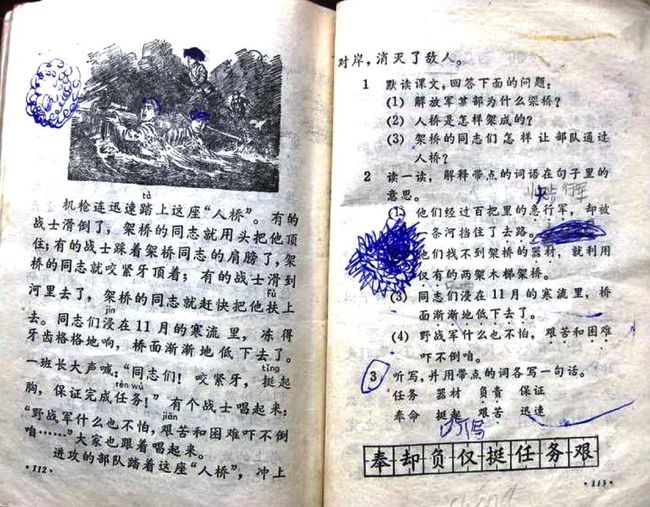 tà
机枪连迅速踏上这座“人桥”。有的
战士滑倒了，架桥的同志就用头把他顶
住；有的战士踩着架桥同志的肩膀了，架
桥的同志就咬紧牙顶着；有的战士滑到
fú
河里去了，架桥的同志就赶快把他扶上
jìn
去。同志们浸在11月的寒流里，冻得
牙齿格格地响，桥面渐渐地低下去了。
tǐng
一班长大声喊：“同志们！咬紧牙，挺起
rèn wù
胸，保证完成任务！”有个战士唱起来：
jiān
“野战军什么也不怕，艰苦和困难吓不倒
咱……”大家也跟着唱起来。
进攻的部队踏着这座“人桥”，冲上
·112·
对岸，消灭了敌人。
1 默读课文，回答下面的问题：
(1) 解放军某部为什么架桥？
(2) 人桥是怎样架成的？
(3) 架桥的同志们怎样让部队通过
人桥？
2 读一读，解释带点的词语在句子里的
意思。
行军
(1) 他们经过百把里的急行军，却被
一条河挡住了去路。
他们找不到架桥的器材，就利用
仅有的两架木梯架桥。
(3) 同志们浸在11月的寒流里，桥
面渐渐地低下去了。
(4) 野战军什么也不怕，艰苦和困难
吓不倒咱。
3 听写，并用带点的词各写一句话。
任务 器材 负责 保证
奉命 挺起 艰苦 迅速
奉却负仅挺任务艰
·113·